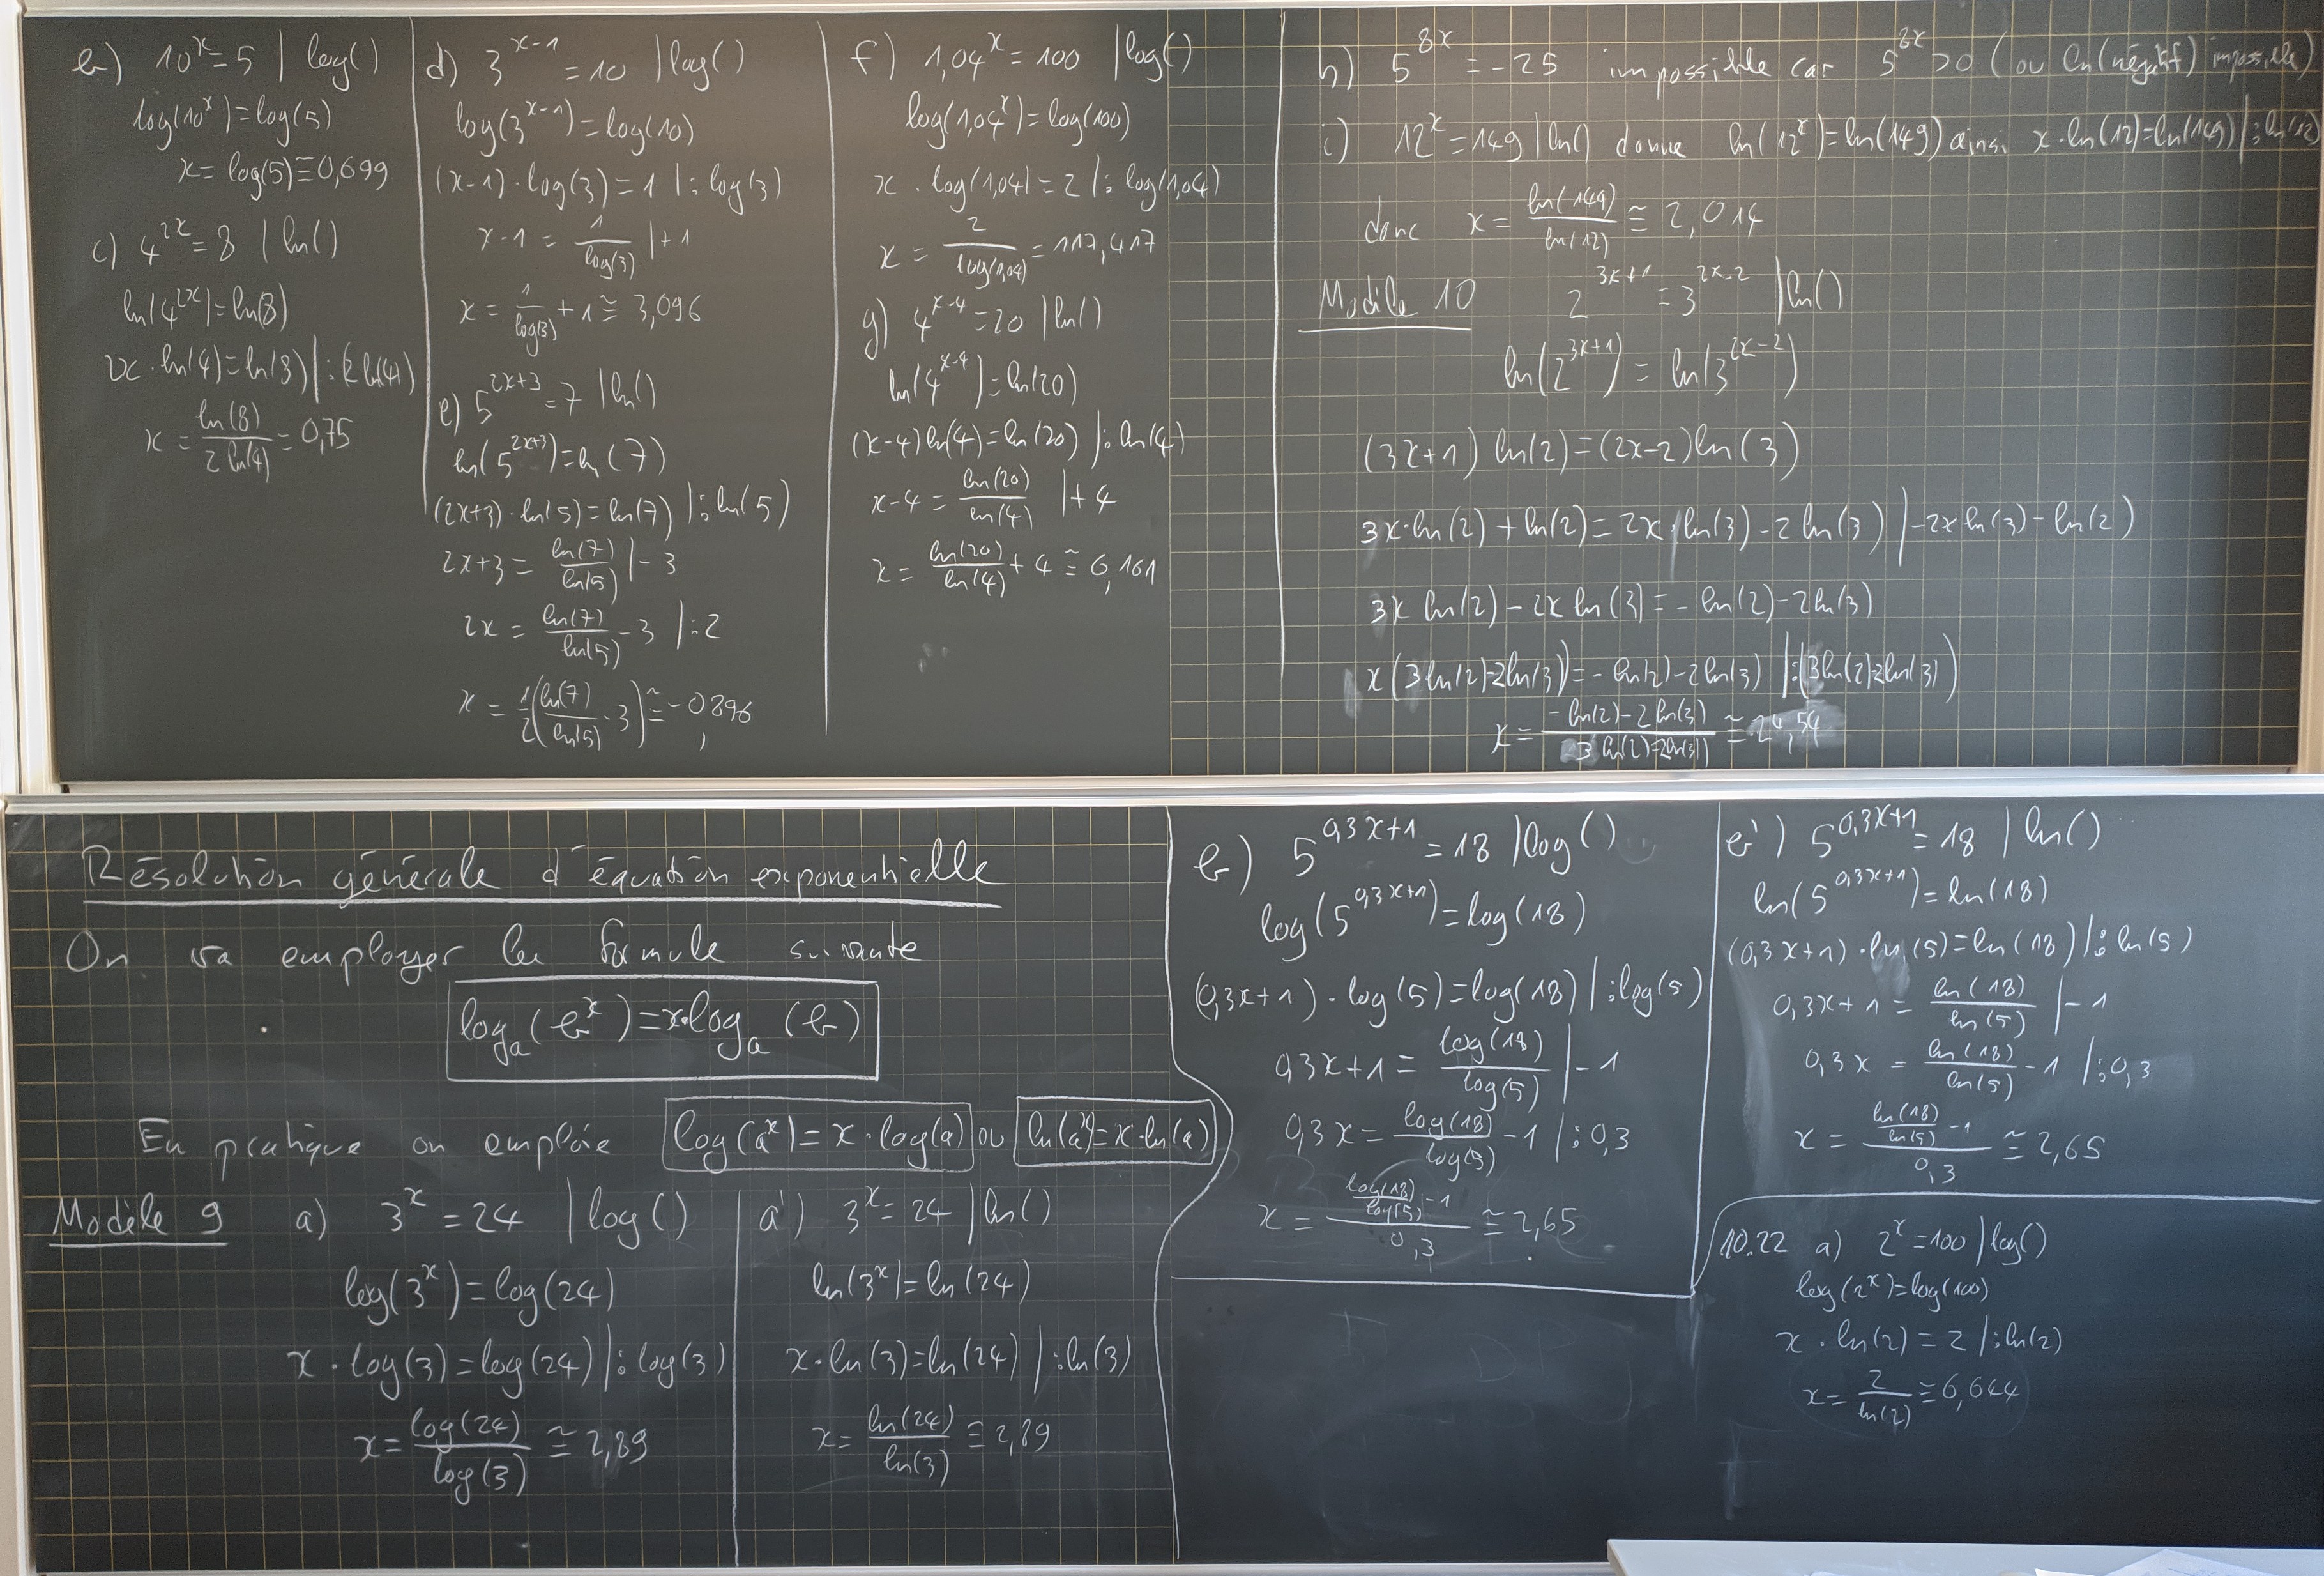 Résolution générale d'équation exponentielle
On va employer la formule suivante
logₐ(b^x)=x·logₐ(b)
En pratique on emploie log(a^x)=x·log(a) ou ln(a^x)=x·ln(a)
Modèle 9 a) 3^x=24 | log()
log(3^x)=log(24)
x·log(3)=log(24) | :log(3)
x=log(24)/log(3) ≅ 2,89
a') 3^x=24 | ln()
ln(3^x)=ln(24)
x·ln(3)=ln(24) | :ln(3)
x=ln(24)/ln(3) ≅ 2,89
b) 5^(0,3x+1)=18 | log()
log(5^(0,3x+1))=log(18)
(0,3x+1)·log(5)=log(18) | :log(5)
0,3x+1=log(18)/log(5) | -1
0,3x=log(18)/log(5)-1 | :0,3
x=(log(18)/log(5)-1)/0,3 ≅ 2,65
b') 5^(0,3x+1)=18 | ln()
ln(5^(0,3x+1))=ln(18)
(0,3x+1)·ln(5)=ln(18) | :ln(5)
0,3x+1=ln(18)/ln(5) | -1
0,3x=ln(18)/ln(5)-1 | :0,3
x=(ln(18)/ln(5)-1)/0,3 ≅ 2,65
10.22 a) 2^x=100 | log()
log(2^x)=log(100)
x·ln(2)=2 | :ln(2)
x=2/ln(2) ≅ 6,644
b) 10^x=5 | log()
log(10^x)=log(5)
x=log(5)≅0,699
c) 4^(2x)=8 | ln()
ln(4^(2x))=ln(8)
2x·ln(4)=ln(8) | :(2ln(4))
x=ln(8)/(2ln(4))=0,75
d) 3^(x-1)=10 | log()
log(3^(x-1))=log(10)
(x-1)·log(3)=1 | :log(3)
x-1=1/log(3) | +1
x=1/log(3)+1≅3,096
e) 5^(2x+3)=7 | ln()
ln(5^(2x+3))=ln(7)
(2x+3)·ln(5)=ln(7) | :ln(5)
2x+3=ln(7)/ln(5) | -3
2x=ln(7)/ln(5)-3 | :2
x=1/2(ln(7)/ln(5)-3)≅-0,896
f) 1,04^x=100 | log()
log(1,04^x)=log(100)
x·log(1,04)=2 | :log(1,04)
x=2/log(1,04)=117,417
g) 4^(x-4)=20 | ln()
ln(4^(x-4))=ln(20)
(x-4)ln(4)=ln(20) | :ln(4)
x-4=ln(20)/ln(4) | +4
x=ln(20)/ln(4)+4≅6,161
h) 5^(8x)=-25 impossible car 5^(8x)>0 (ou ln(négatif) impossible)
i) 12^x=149 | ln() donne ln(12^x)=ln(149) ainsi x·ln(12)=ln(149) | :ln(12)
donc x=ln(149)/ln(12)≅2,014
Modèle 10 2^(3x+1)=3^(2x-2) | ln()
ln(2^(3x+1))=ln(3^(2x-2))
(3x+1)ln(2)=(2x-2)ln(3)
3x·ln(2)+ln(2)=2x·ln(3)-2ln(3) | -2xln(3)-ln(2)
3xln(2)-2xln(3)=-ln(2)-2ln(3)
x(3ln(2)-2ln(3))=-ln(2)-2ln(3) | :(3ln(2)-2ln(3))
x=(-ln(2)-2ln(3))/(3ln(2)-2ln(3))≅24,54